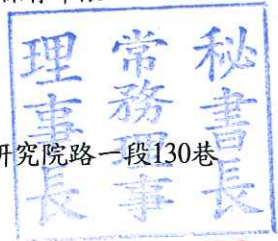 秘書長
常務理事
理事長
研究院路一段130巷